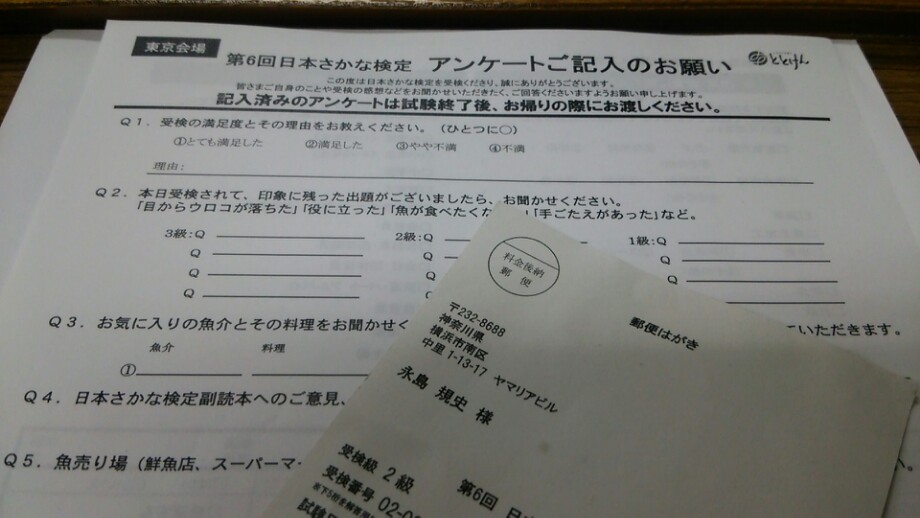 東京会場
第6回日本さかな検定 アンケートご記入のお願い
ととけん
この度は日本さかな検定を受検くださり、誠にありがとうございます。
皆さまご自身のことや受検の感想などをお聞かせいただきたく、ご回答くださいますようお願い申し上げます。
記入済みのアンケートは試験終了後、お帰りの際にお渡しください。
Q1. 受検の満足度とその理由をお教えください。（ひとつに○）
①とても満足した ②満足した ③やや不満 ④不満
理由:
Q2. 本日受検されて、印象に残った出題がございましたら、お聞かせください。
「目からウロコが落ちた」「役に立った」「魚が食べたくな 」「手ごたえがあった」など。
3級:Q 2級:Q 1級:Q
Q Q Q
Q Q Q
Q
Q3. お気に入りの魚介とその料理をお聞かせく ていただきます。
魚介 料理
①
Q4. 日本さかな検定副読本へのご意見、
Q5. 魚売り場（鮮魚店、スーパーマ
料金後納
郵便
郵便はがき
〒232-8688
神奈川県
横浜市南区
中里 1-13-17 ヤマリアビル
永島 規史 様
受検級 2級
第6回 日
受検番号 02-0